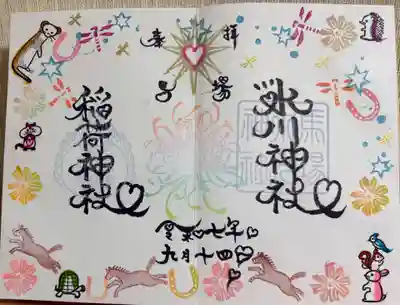 奉拝
氷川神社
稲荷神社
令和七年
九月十四